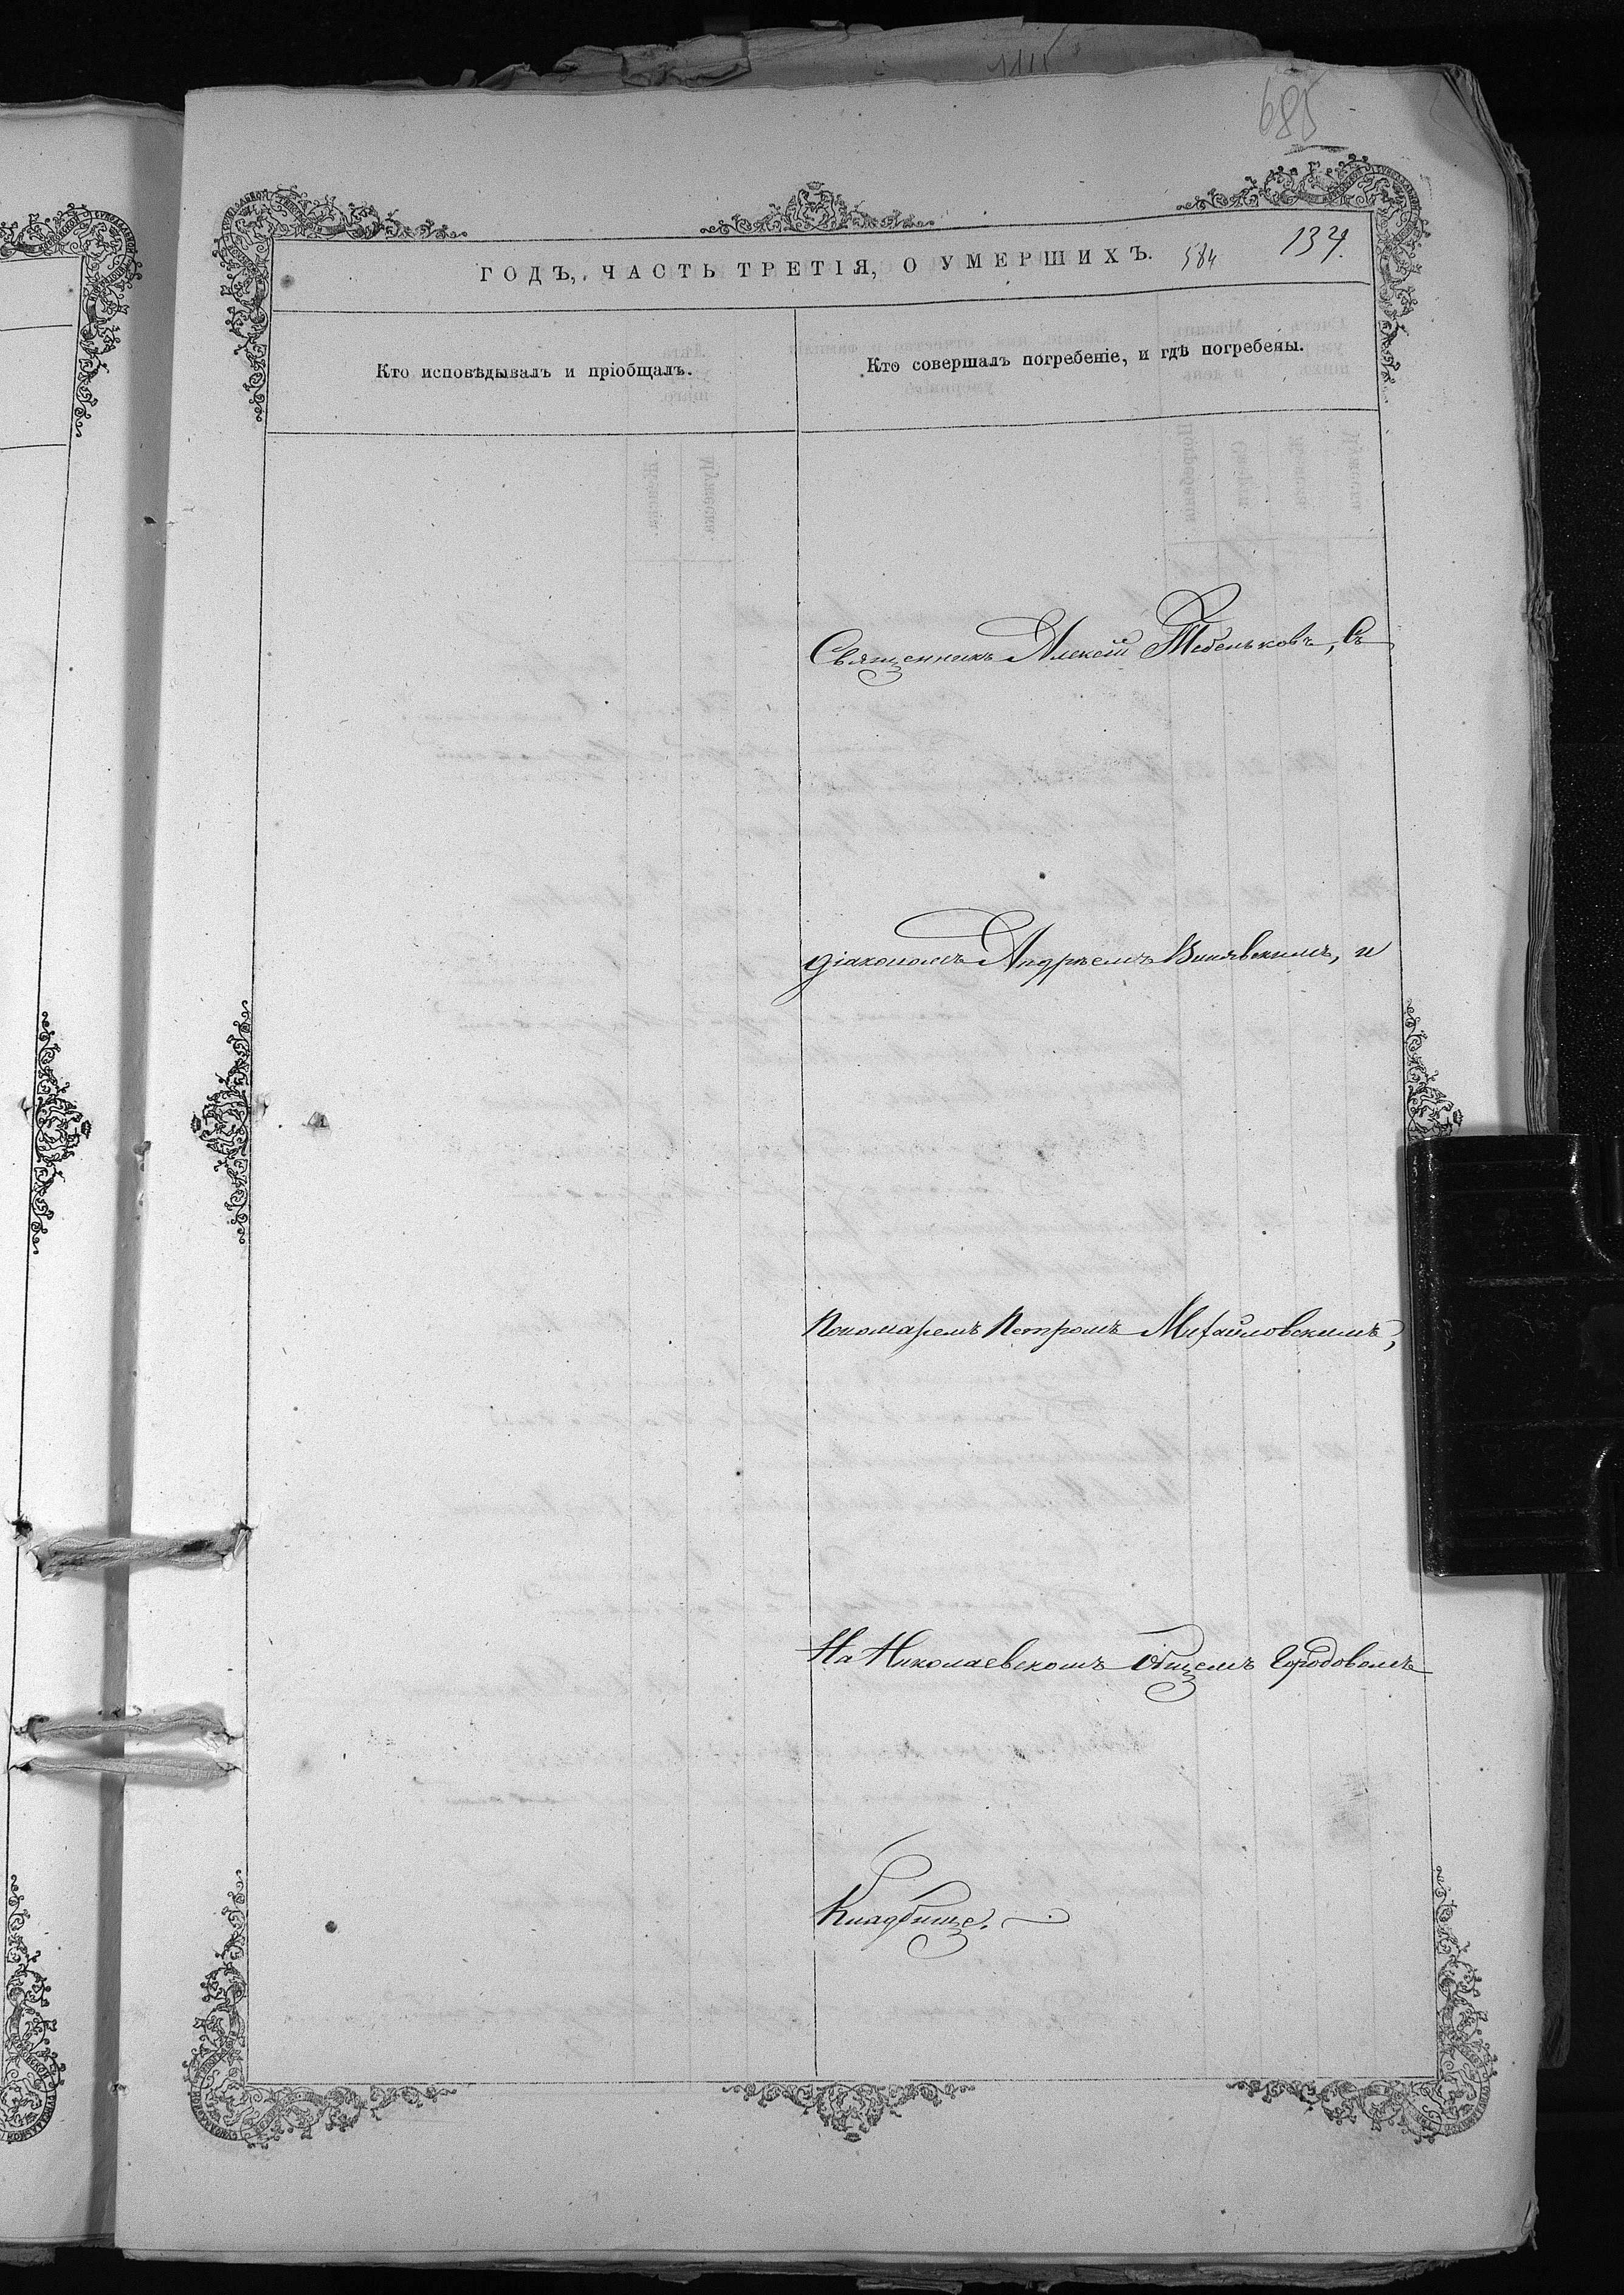 685
ГОДЪ, ЧАСТЬ ТРЕТІЯ, О УМЕРШИХЪ.
584
134.
Кто исповѣдывалъ и пріобщалъ.
Кто совершалъ погребеніе, и гдѣ погребены.
Священникъ Алексѣй Тебеньковъ, Съ
діакономъ Андреемъ Винявскимъ, и
Пономаремъ Петромъ Михайловскимъ,
На Николаевскомъ Общемъ Городовомъ
Кладбище.